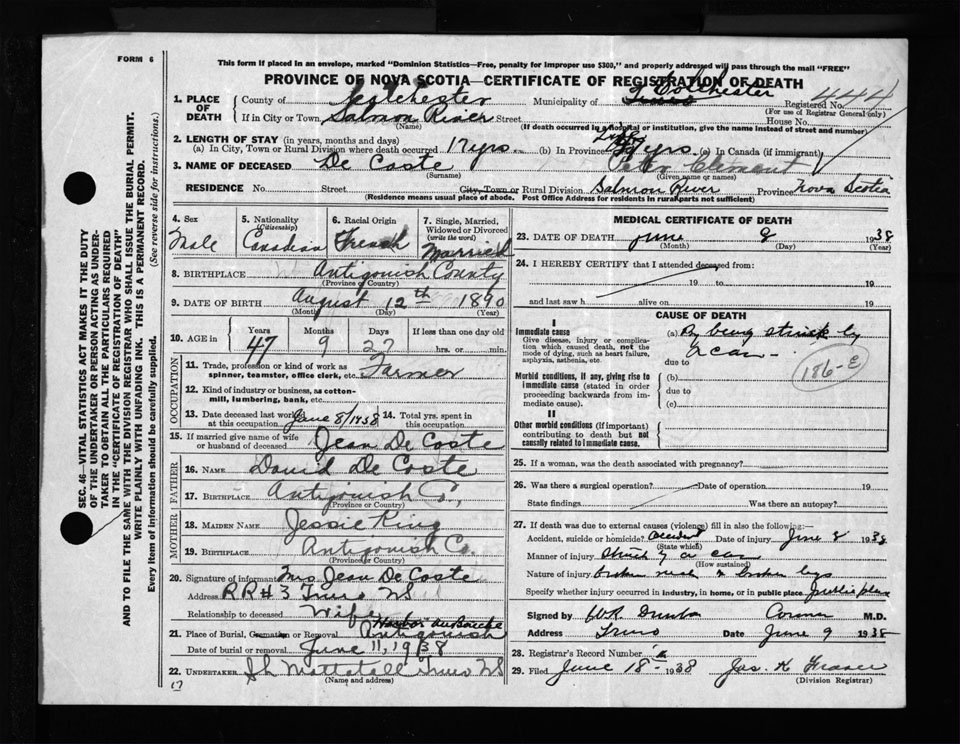 FORM 6
This form if placed in an envelope, marked "Dominion Statistics—Free, penalty for improper use $300," and properly addressed will pass through the mail "FREE"
PROVINCE OF NOVA SCOTIA—CERTIFICATE OF REGISTRATION OF DEATH
SEC. 46—VITAL STATISTICS ACT MAKES IT THE DUTY
OF THE UNDERTAKER OR PERSON ACTING AS UNDER-
TAKER TO OBTAIN ALL THE PARTICULARS REQUIRED
IN THE "CERTIFICATE OF REGISTRATION OF DEATH"
AND TO FILE THE SAME WITH THE DIVISION REGISTRAR WHO SHALL ISSUE THE BURIAL PERMIT.
WRITE PLAINLY WITH UNFADING INK. THIS IS A PERMANENT RECORD.
Every item of information should be carefully supplied. (See reverse side for instructions.)
1. PLACE OF DEATH
County of Colchester Municipality of Truro Colchester Registered No. 444
(For use of Registrar General only)
If in City or Town Salmon River Street House No.
(Name) (If death occurred in a hospital or institution, give the name instead of street and number)
2. LENGTH OF STAY (in years, months and days)
(a) In City, Town or Rural Division where death occurred 17 yrs. (b) In Province yrs. (c) In Canada (if immigrant)
3. NAME OF DECEASED De Coste Clement
(Surname) (Given name or names)
RESIDENCE No. Street City, Town or Rural Division Salmon River Province Nova Scotia
(Residence means usual place of abode. Post Office Address for residents in rural parts not sufficient)
4. Sex
Male
5. Nationality
(Citizenship)
Canadian
6. Racial Origin
French
7. Single, Married,
Widowed or Divorced
(write the word)
Married
8. BIRTHPLACE Antigonish County
(Province or Country)
9. DATE OF BIRTH August 12th 1890
(Month) (Day) (Year)
10. AGE in
Years Months Days If less than one day old
47 9 27 hrs. or min.
OCCUPATION
11. Trade, profession or kind of work as
spinner, teamster, office clerk, etc. Farmer
12. Kind of industry or business, as cotton-
mill, lumbering, bank, etc.
13. Date deceased last worked
at this occupation June 8/1938
14. Total yrs. spent in
this occupation
15. If married give name of wife
or husband of deceased Jean De Coste
FATHER
16. NAME David De Coste
17. BIRTHPLACE Antigonish Co.,
(Province or Country)
MOTHER
18. MAIDEN NAME Jessie King
19. BIRTHPLACE Antigonish Co.
(Province or Country)
20. Signature of informant Mrs Jean De Coste
Address RR#3 Truro NS
Relationship to deceased Wife
21. Place of Burial, Cremation or Removal Harbor au Bouche Antigonish
Date of burial or removal June 11, 1938
22. UNDERTAKER Mattatall Truro NS
(Name and address)
MEDICAL CERTIFICATE OF DEATH
23. DATE OF DEATH June 8 1938
(Month) (Day) (Year)
24. I HEREBY CERTIFY that I attended deceased from:
19 to 19
and last saw h alive on 19
CAUSE OF DEATH
I
Immediate cause
Give disease, injury or complica-
tion which caused death, not the
mode of dying, such as heart failure,
asphyxia, asthenia, etc.
(a) By being struck by
a car
due to
186-c
Morbid conditions, if any, giving rise to
immediate cause (stated in order
proceeding backwards from im-
mediate cause).
(b)
due to
(c)
II
Other morbid conditions (if important)
contributing to death but not
causally related to immediate cause.
25. If a woman, was the death associated with pregnancy?
26. Was there a surgical operation? Date of operation 19
State findings Was there an autopsy?
27. If death was due to external causes (violence) fill in also the following:
Accident, suicide or homicide? Accident Date of injury June 8 1938
(State which)
Manner of injury Struck by a car
(How sustained)
Nature of injury broken neck & broken legs
Specify whether injury occurred in industry, in home, or in public place public place
Signed by W.R. Dunbar Coroner M.D.
Address Truro Date June 9 1938
28. Registrar's Record Number
29. Filed June 18 1938 Jas. K Fraser
(Division Registrar)